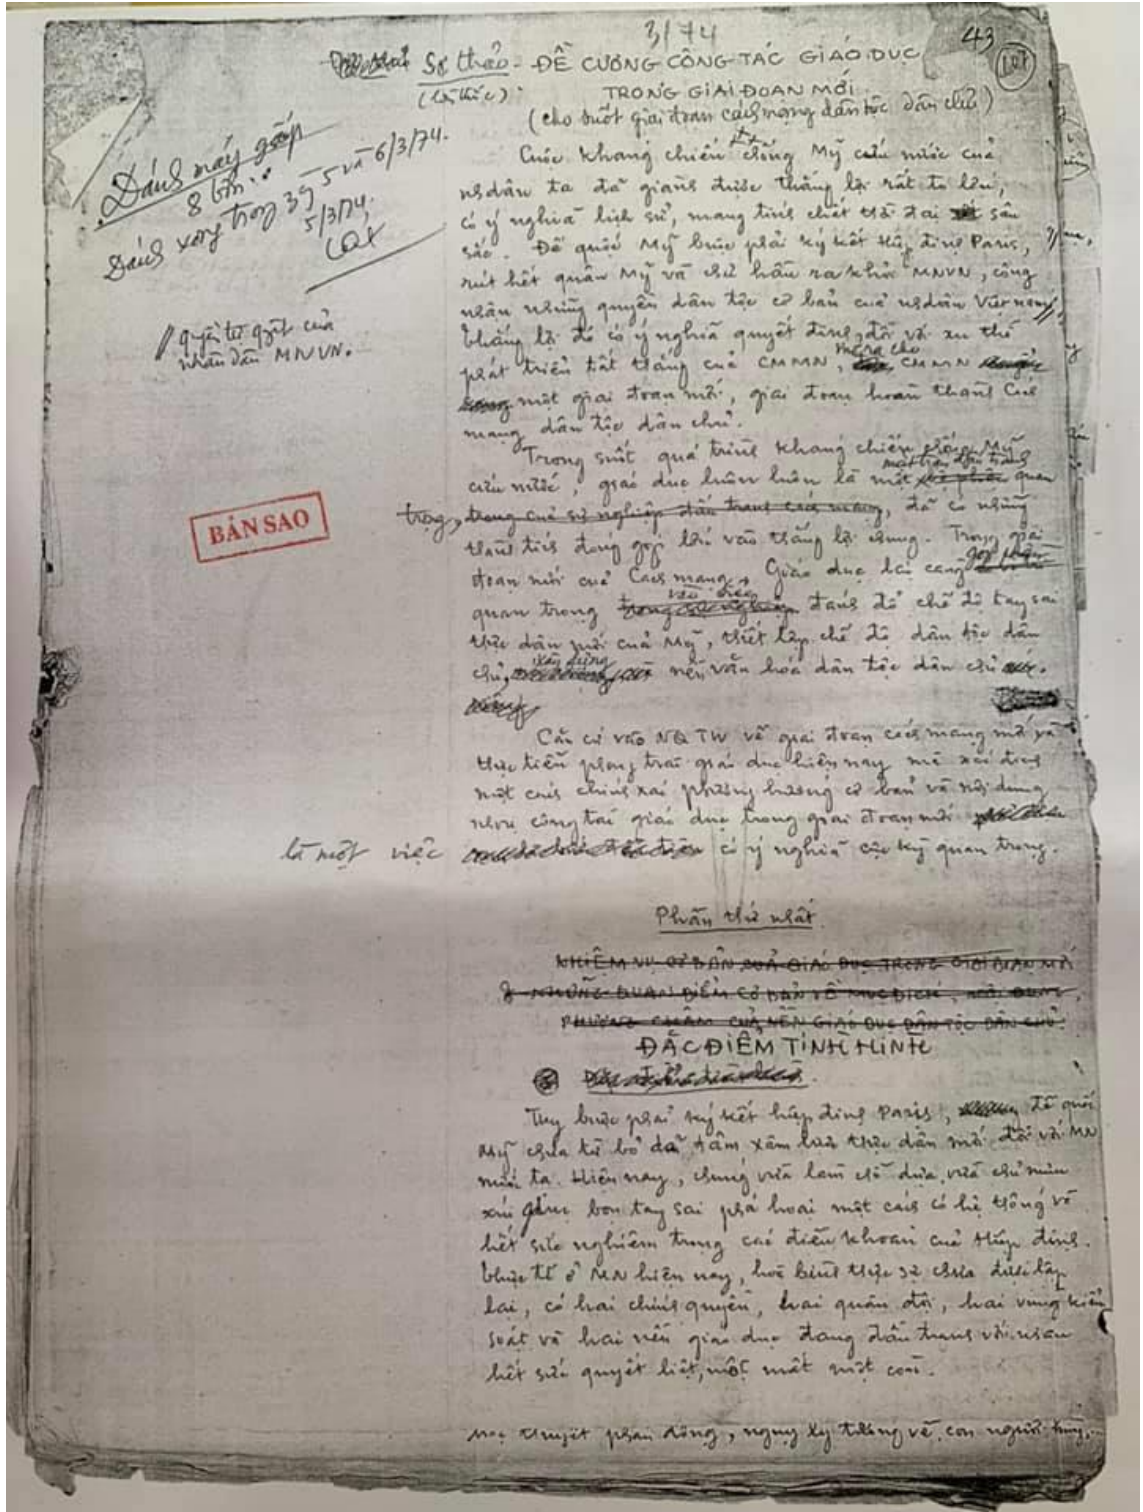 3/74
43
107
Sơ thảo - ĐỀ CƯƠNG CÔNG TÁC GIÁO DỤC
(lần thứ ):
TRONG GIAI ĐOẠN MỚI
(cho suốt giai đoạn cách mạng dân tộc dân chủ)
Đánh máy gấp
8 bản
Đánh xong trong 3 ng 5 và 6/3/74.
5/3/74
Cuộc kháng chiến chống Mỹ cứu nước của
nhdân ta đã giành được thắng lợi rất to lớn,
có ý nghĩa lịch sử, mang tính chất thời đại sâu
sắc. Đế quốc Mỹ buộc phải ký kết Hiệp định Paris,
rút hết quân Mỹ và chư hầu ra khỏi MNVN, công
nhận những quyền dân tộc cơ bản của nhdân Việt nam //,
// quyền tự quyết của
nhân dân MNVN.
thắng lợi đó có ý nghĩa quyết định đối với xu thế
phát triển tất thắng của CMMN, mở ra cho CMMN
một giai đoạn mới, giai đoạn hoàn thành Cách
mạng dân tộc dân chủ.
Trong suốt quá trình kháng chiến chống Mỹ
cứu nước, giáo dục luôn luôn là một mặt trận đấu tranh quan
trọng, trong cuả sự nghiệp đấu tranh cách mạng, đã có những
thành tích đóng góp lớn vào thắng lợi chung. Trong giai
đoạn mới của Cách mạng, Giáo dục lại càng góp phần
quan trọng vào việc đánh đổ chế độ tay sai
thực dân mới của Mỹ, thiết lập chế độ dân tộc dân
chủ, xây dựng nền văn hóa dân tộc dân chủ
Căn cứ vào NQ TW về giai đoạn cách mạng mới và
thực tiễn phong trào giáo dục hiện nay mà xác định
một cách chính xác phương hướng cơ bản và nội dung
nhvụ công tác giáo dục trong giai đoạn mới
là một việc có ý nghĩa cực kỳ quan trọng.
BẢN SAO
Phần thứ nhất
NHIỆM VỤ CƠ BẢN CUẢ GIÁO DỤC TRONG GIAI ĐOẠN MỚI
& NHỮNG QUAN ĐIỂM CƠ BẢN VỀ MỤC ĐÍCH, NỘI DUNG,
PHƯƠNG CHÂM CUẢ NỀN GIÁO DỤC DÂN TỘC DÂN CHỦ.
ĐẶC ĐIỂM TÌNH HÌNH
Tuy buộc phải ký kết hiệp định Paris, đế quốc
Mỹ chưa từ bỏ dã tâm xâm lược thực dân mới đối với MN
nước ta. Hiện nay, chúng vừa làm chỗ dựa, vừa chủ mưu
xúi giục bọn tay sai phá hoại một cách có hệ thống và
hết sức nghiêm trọng các điều khoản của Hiệp định.
Thực tế ở MN hiện nay, hoà bình thực sự chưa được lập
lại, có hai chính quyền, hai quân đội, hai vùng kiểm
soát và hai nền giáo dục đang đấu tranh với nhau
hết sức quyết liệt, một mất một còn.
học thuyết phản động, nguỵ lý tưởng về con người